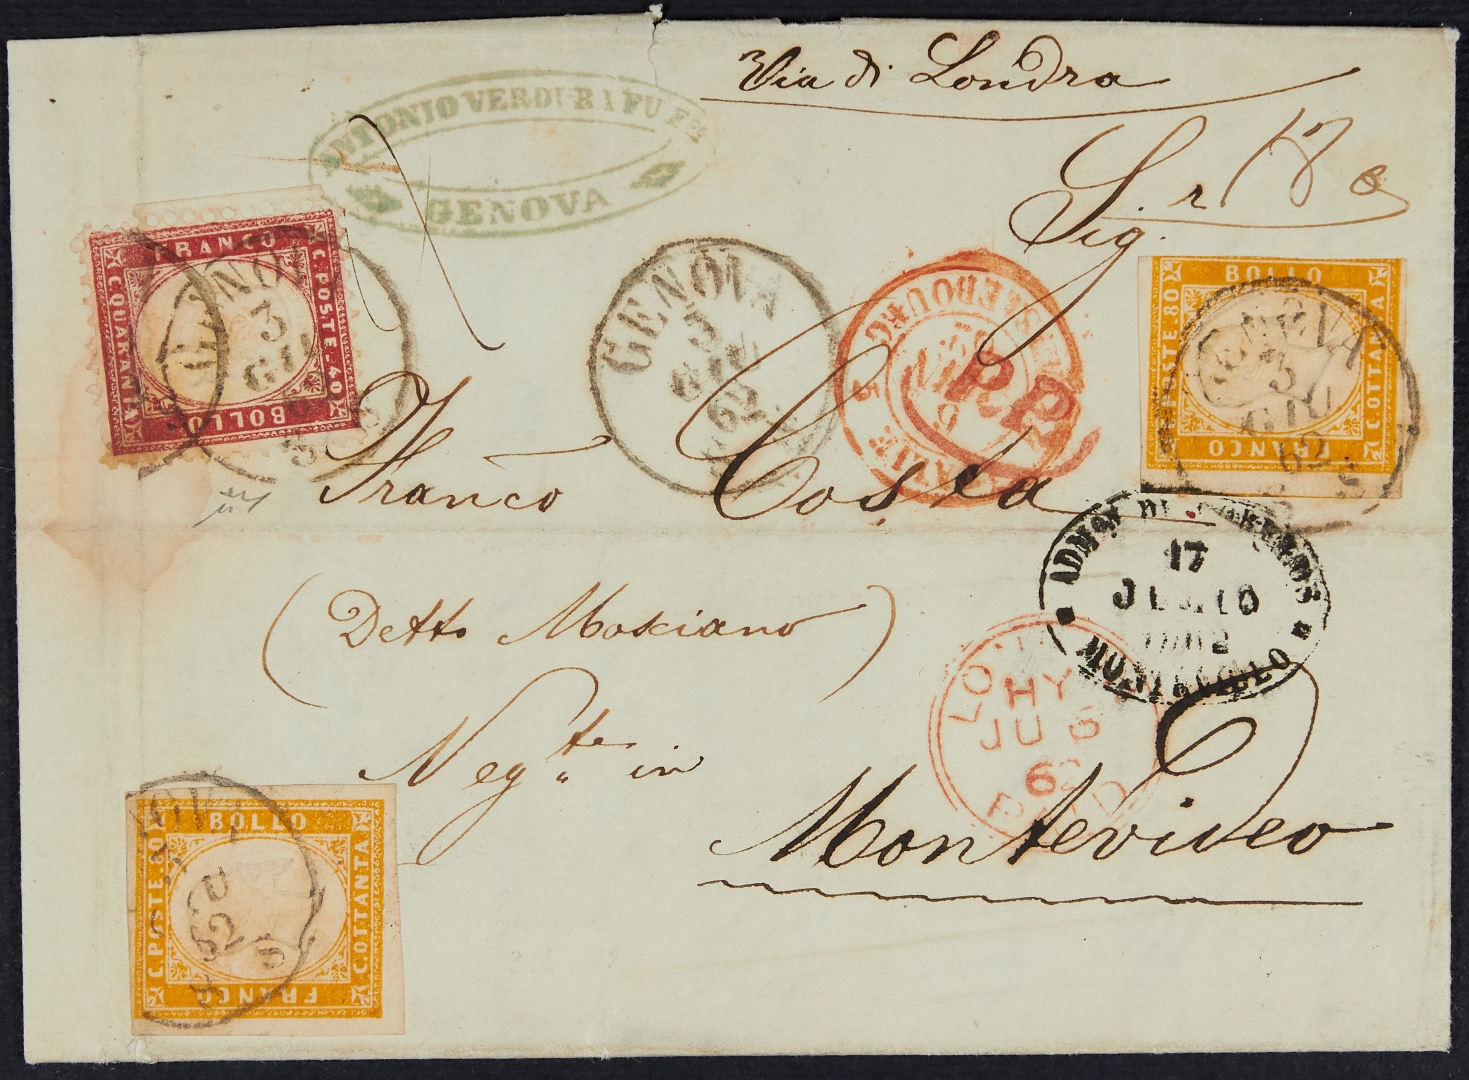 Via di Londra
ANTONIO VERDURA FU
GENOVA
Sig.r
FRANCO
C. POSTE. 40
C. QUARANTA
BOLLO
GENOVA
3
GIU
GENOVA
3
GIU
62
P.P.
BOLLO
C. POSTE. 80
C. OTTANTA
FRANCO
GENOVA
3
GIU
62
Franco Costa
17
JULIO
1862
MONTEVIDEO
(Detto Mosciano)
HY
JU 6
62
PAID
Neg.te in
Montevideo
BOLLO
C. POSTE. 80
C. OTTANTA
FRANCO
U
62